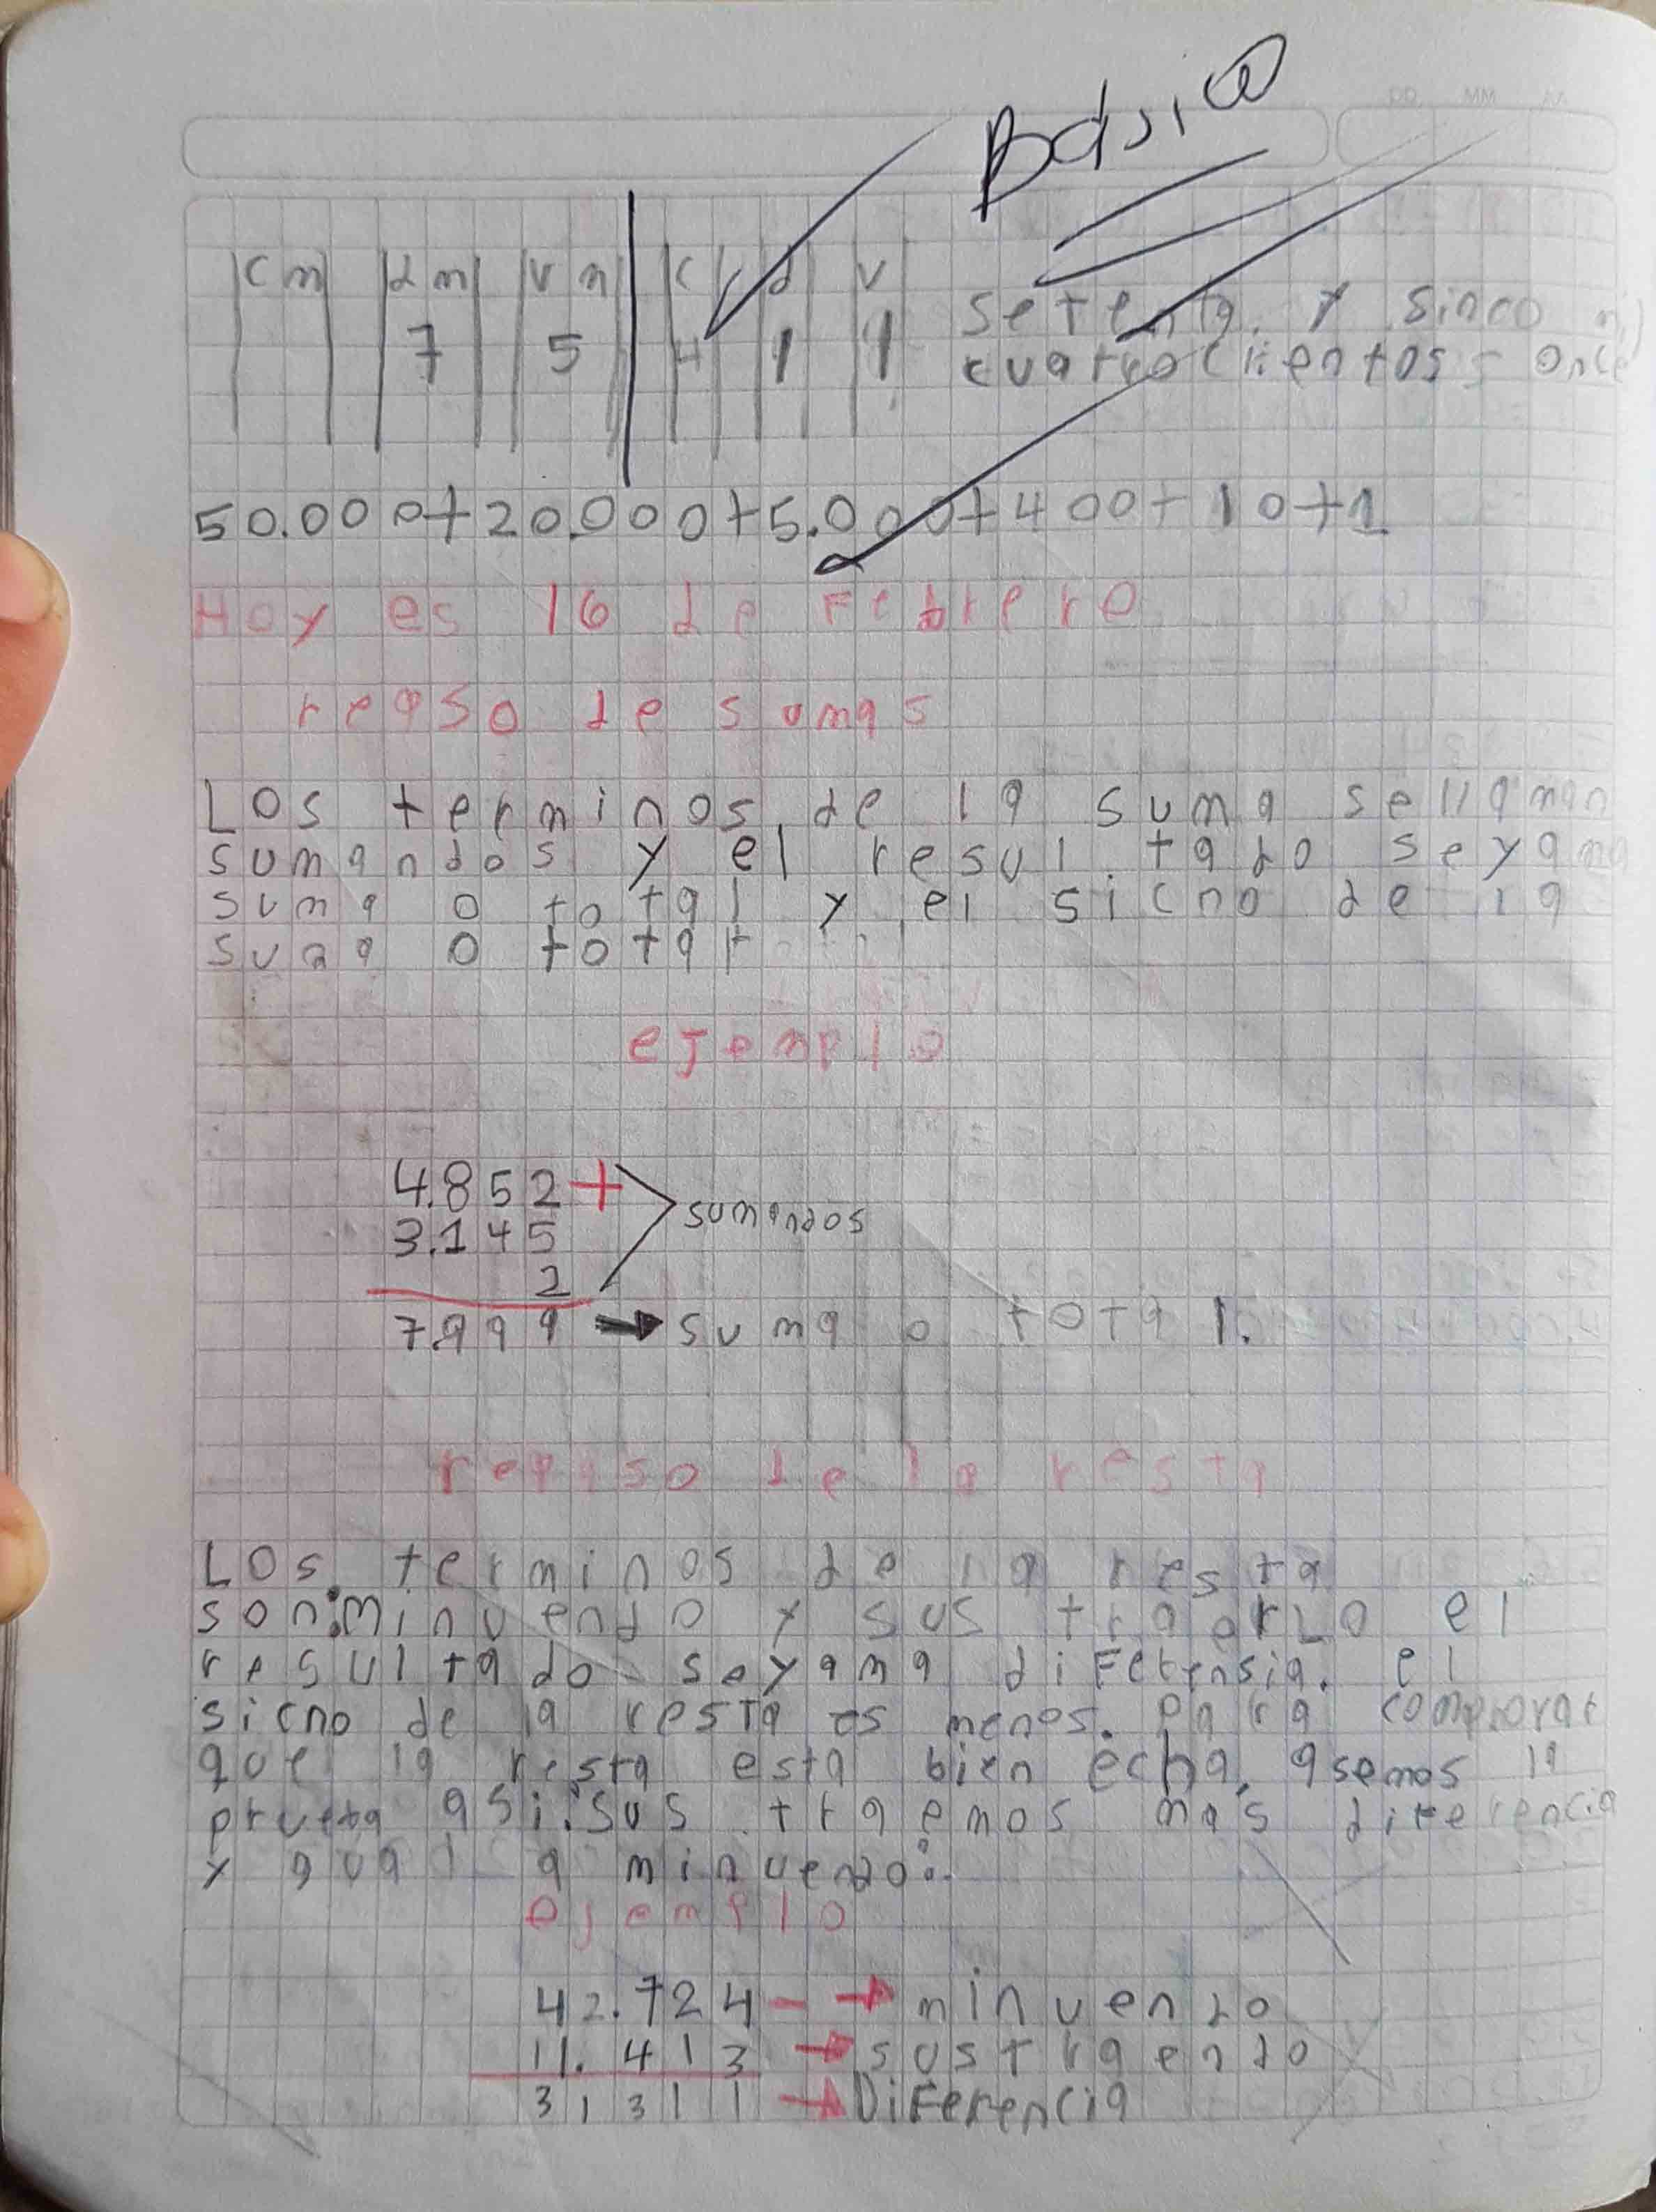 DD MM AA
Básico
cm dm um c d u
7 5 4 1 1
setenta y sinco mil
cuatrocientos once
50.000+20.000+5.000+400+10+1
Hoy es 16 de Febrero
reaso de sumas
Los terminos de la suma sellaman
sumandos y el resultado seyama
suma o total y el sicno de la
suaa o total
ejemplo
4.852+
3.145 sumandos
2
7.999 → suma o total.
repaso de la resta
Los terminos de la resta
son:minuendo y sus el
resultado seyama diferensia. el
sicno de la resta es menos. para comprovar
que la resta esta bien echa, asemos la
prueba asi:sus traemos mas diferencia
y gual a minuendo:.
ejemplo
42.724 - → minuendo
11.413 → sustraendo
31311 → Diferencia